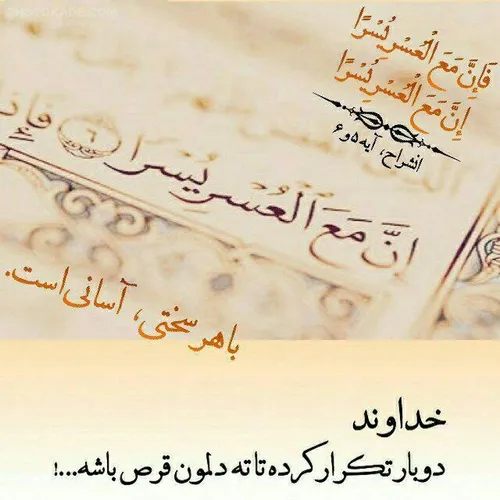 فَإِنَّ مَعَ الْعُسْرِ يُسْرًا
إِنَّ مَعَ الْعُسْرِ يُسْرًا
انشراح، آیه ۵ و ۶
إِنَّ مَعَ الْعُسْرِ يُسْرًا ٦ فَإِذَا
با هر سختی، آسانی است.
خداوند
دوبار تکرار کرده تا ته دلمون قرص باشه...!